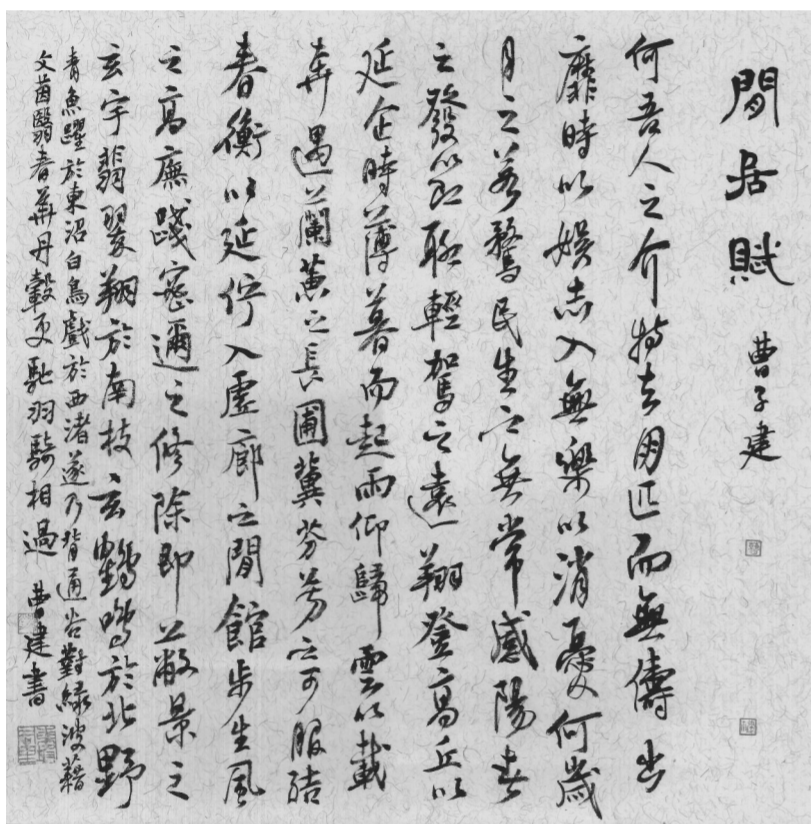 閒居賦
曹子建
何吾人之介特去朋匹而無儔出
靡時以娛志入無樂以消憂何歲
月之若騖民生之無常感陽春
之發以聊輕駕之遠翔登高丘以
延企時薄暮而起雨仰歸雲以載
奔遇蘭蕙之長圃冀芬芳之可服結
春衡以延佇入虛廊之閒館步生風
之高廡踐密邇之修除即蔽景之
玄宇翡翠翔於南枝玄鶴鳴於北野
青魚躍於東沼白鳥戲於西渚遂乃背通谷對綠波藉
文茵翳春華丹轂更馳羽騎相過 曹建書